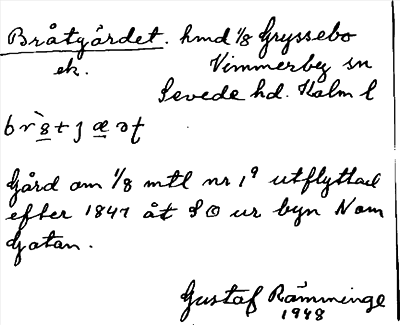 Bråtgårdet. hmd 1/8 Gryssebo
ek. Vimmerby sn
Sevede hd. Kalm l
Gård om 1/8 mtl nr 1⁹ utflyttad
efter 1847 åt SO ur byn Norr
Gatan.
Gustaf Rämminge
1948